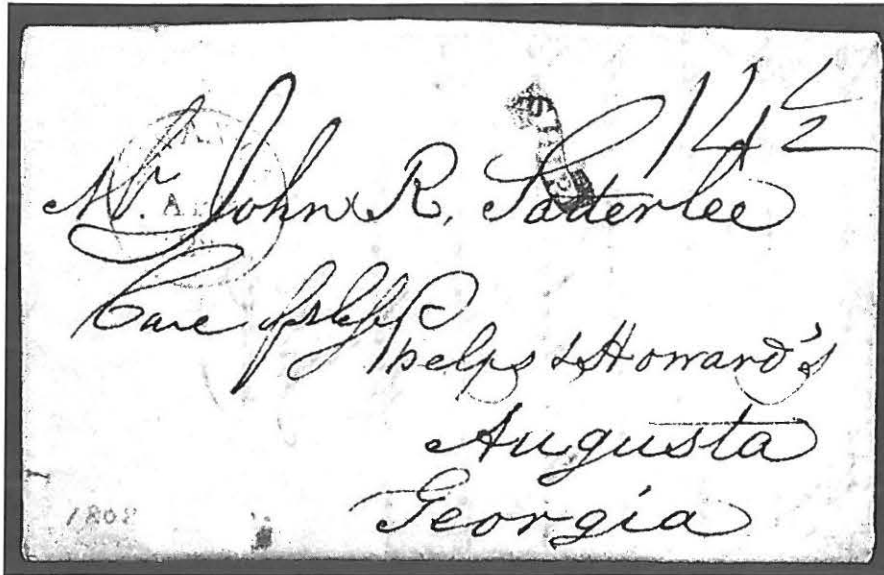 14½
Mr. John R. Satterlee
Care of Phelps & Howard's
Augusta
Georgia
1808